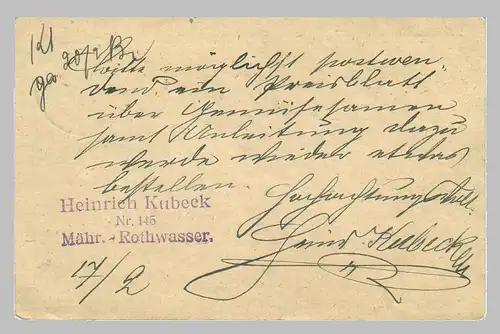 20/2
Bitte möglichst postwen-
dend, ein Preisblatt
über Gemüsesamen
samt Anleitung dazu
werde wieder etwas
bestellen.
Hochachtungsvoll
Heinrich Kubeck
Nr. 145
Mähr.-Rothwasser.
Heinr. Kubeck
17/2